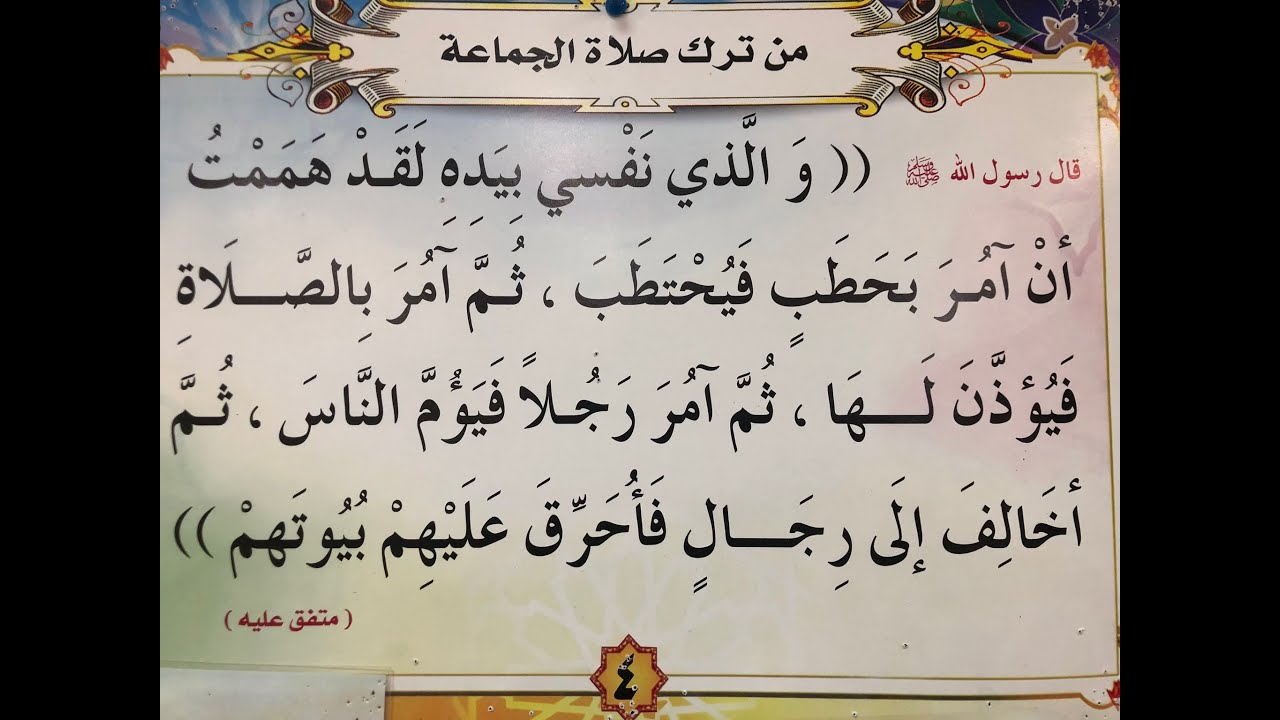 من ترك صلاة الجماعة
قال رسول الله ﷺ (( وَ الَّذي نَفْسي بِيَدَه لَقَدْ هَمَمْتُ
أنْ آمُرَ بَحَطَبٍ فَيُحْتَطَبَ ، ثُمَّ آمُرَ بِالصَّلَاةِ
فَيُؤذَّنَ لَهَا ، ثُمَّ آمُرَ رَجُلاً فَيَؤُمَّ النَّاسَ ، ثُمَّ
أخَالِفَ إلَى رِجَالٍ فَأُحَرِّقَ عَلَيْهِمْ بُيُوتَهمْ ))
( متفق عليه )
٤